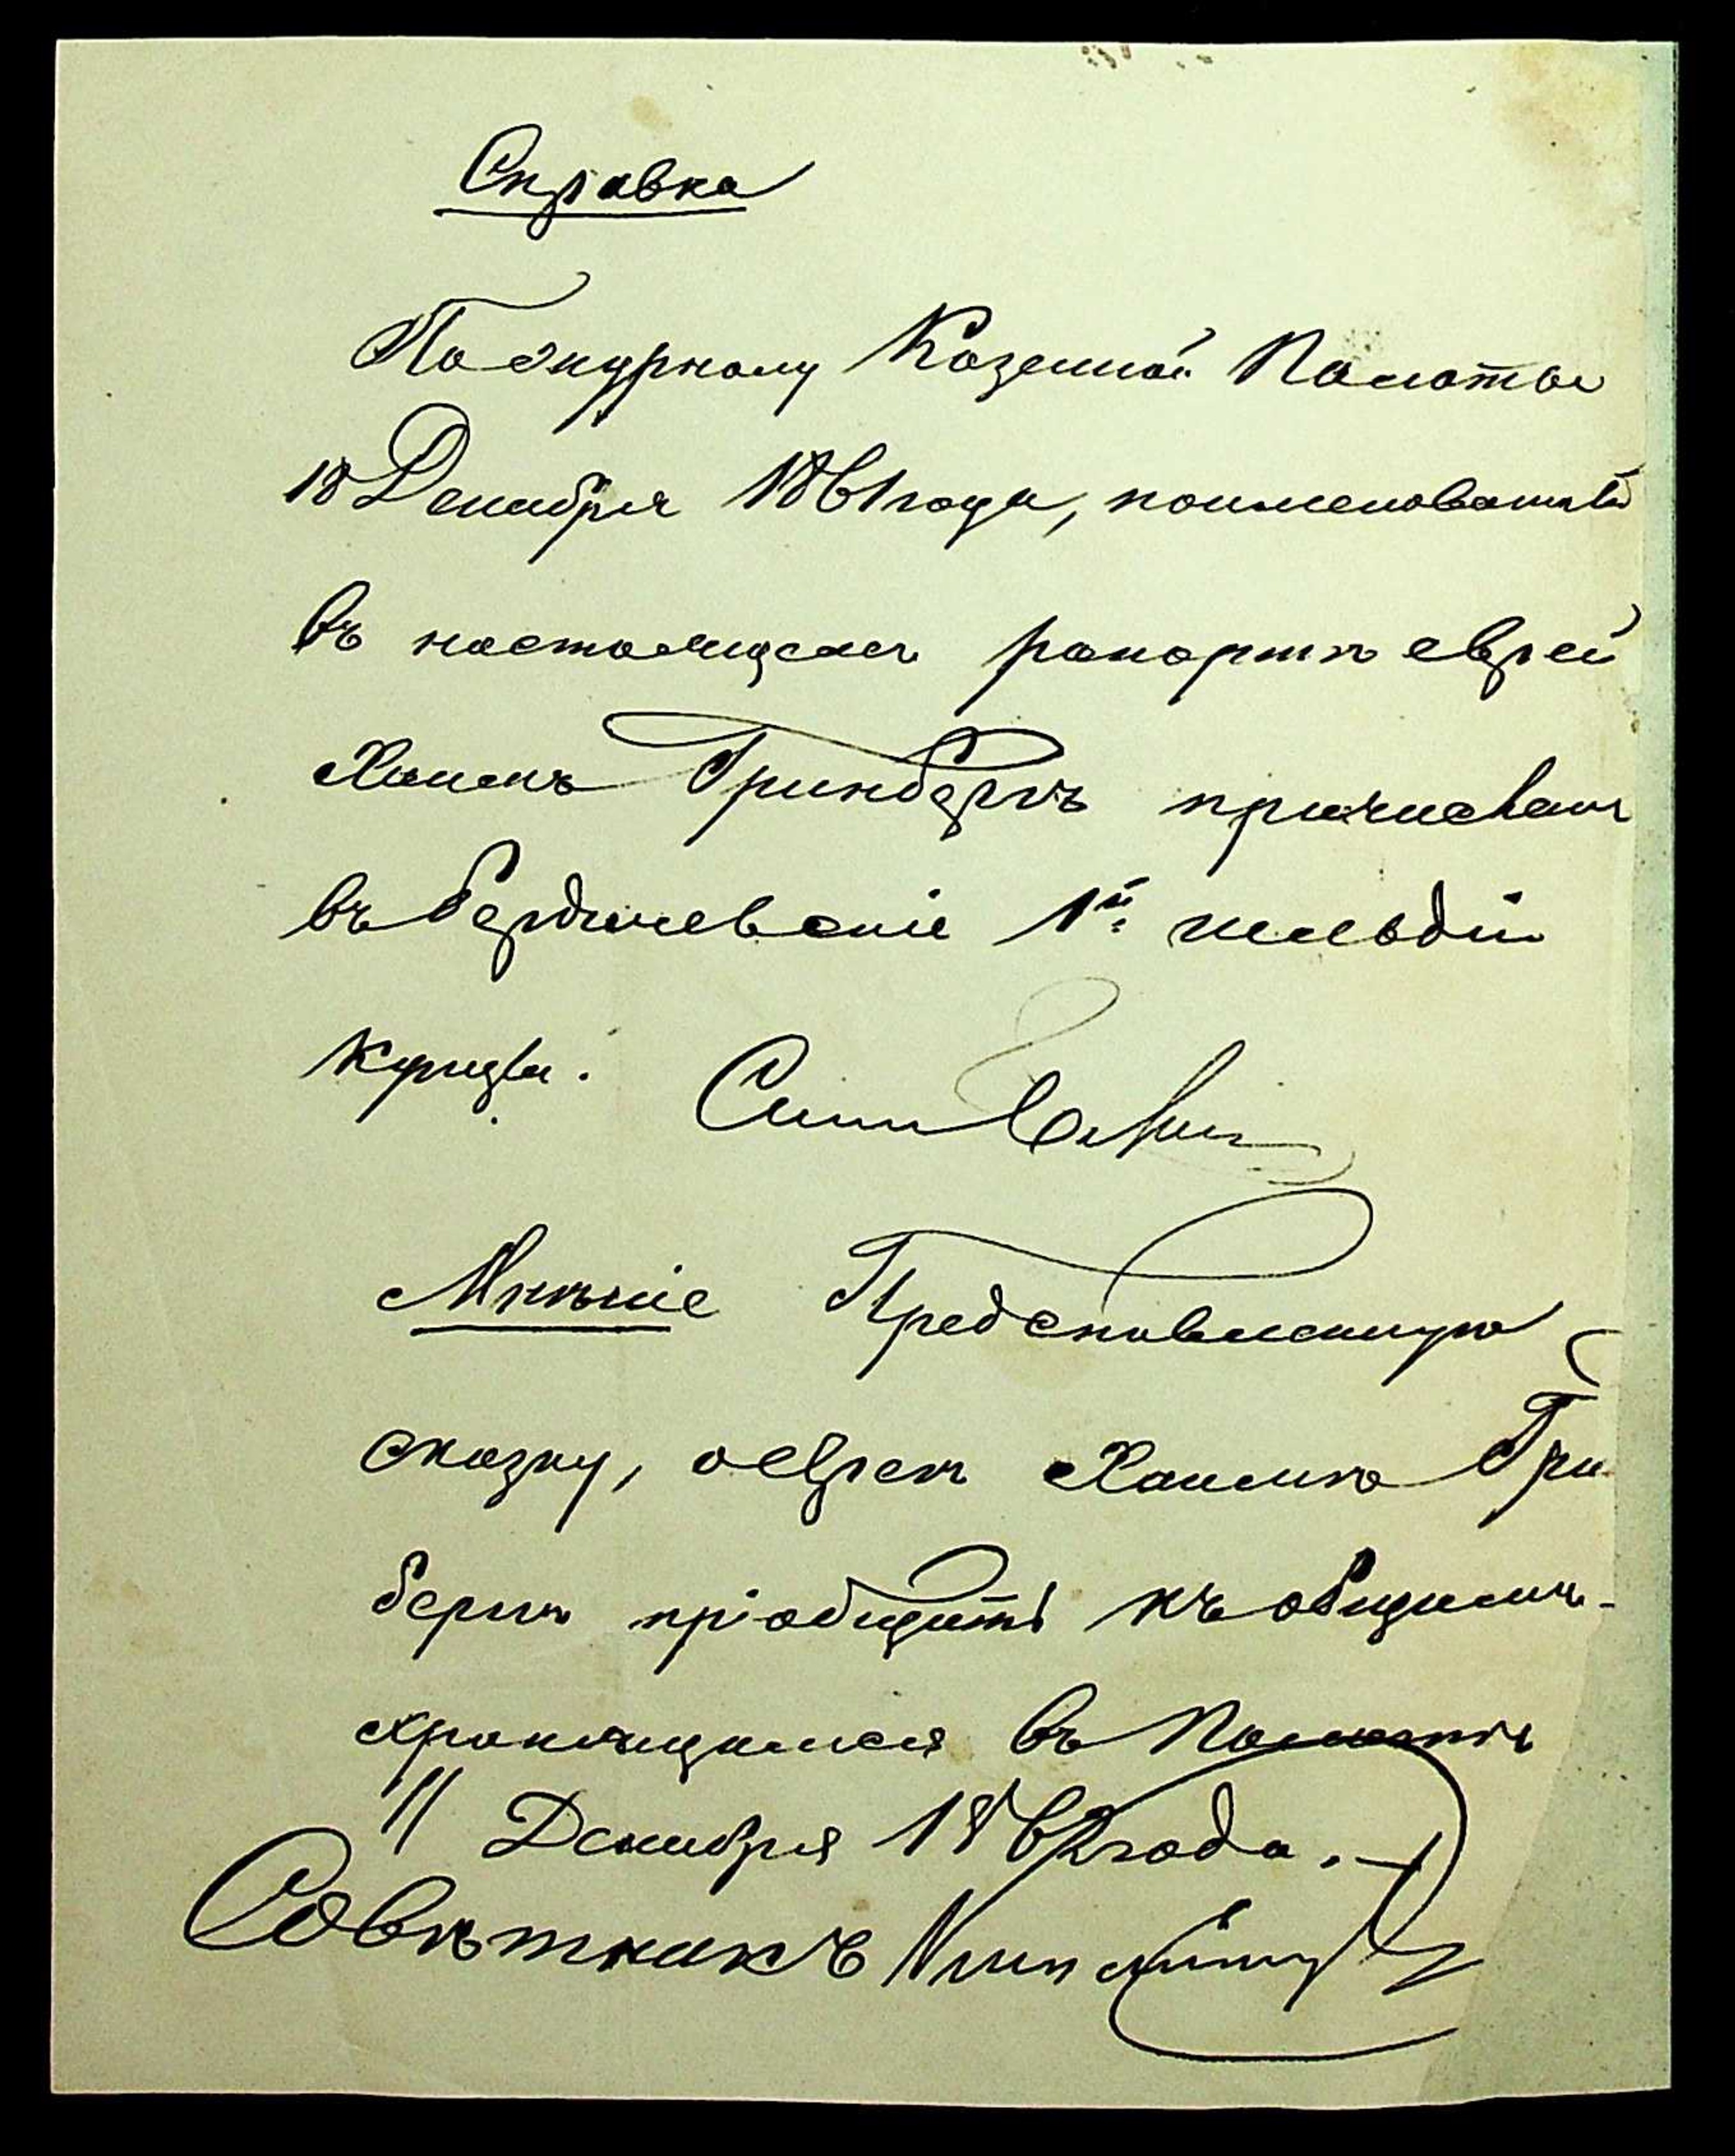 Справка
По журналу Казенной Палаты
18 Декабря 1861 года, поименованный
въ настоящемъ рапортѣ еврей
Хаимъ Гринбергъ причисленъ
въ Бердичевскіе 1й гильдіи
купцы.
Мнѣніе Представленную
сказку, о евреѣ Хаимѣ Грин
бергѣ пріобщить къ общимъ
хранящимся въ Палатѣ
11 Декабря 1862 года.
Совѣтникъ